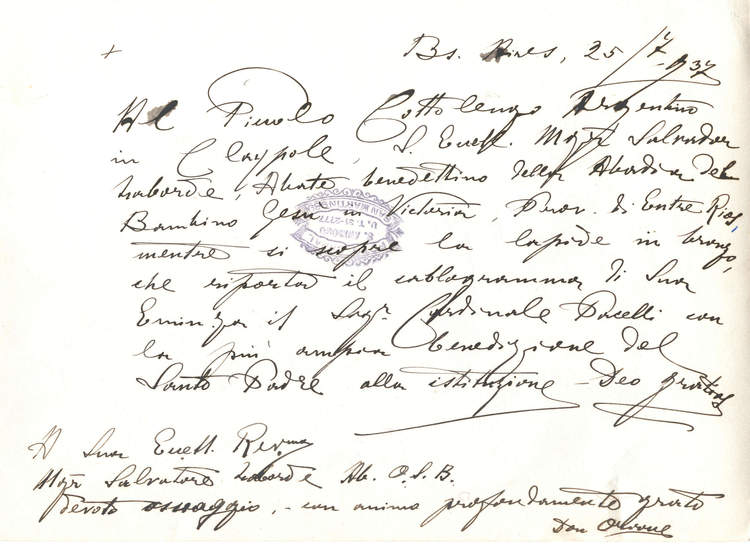 +
Bs. Aires, 25/7 937
Al Piccolo Cottolengo Argentino
in Claypole, S. Ecell. Mgr Salvador
Laborde, Abate benedettino della Abadia del
Bambino Gesù in Victoria, Prov. di Entre Rios,
mentre si scopre la lapide in bronzo,
che riporta il cablogramma di Sua
Eminza il Sigr Cardinale Pacelli con
la più ampia benedizione del
Santo Padre alla istituzione - Deo gratias
A Sua Ecell. Rev.ma
Mgr Salvatore Laborde Ab. O.S.B.
devoto omaggio, - con animo profondamente grato
Don Orione
SAN MARTIN
U. T. 31-2777